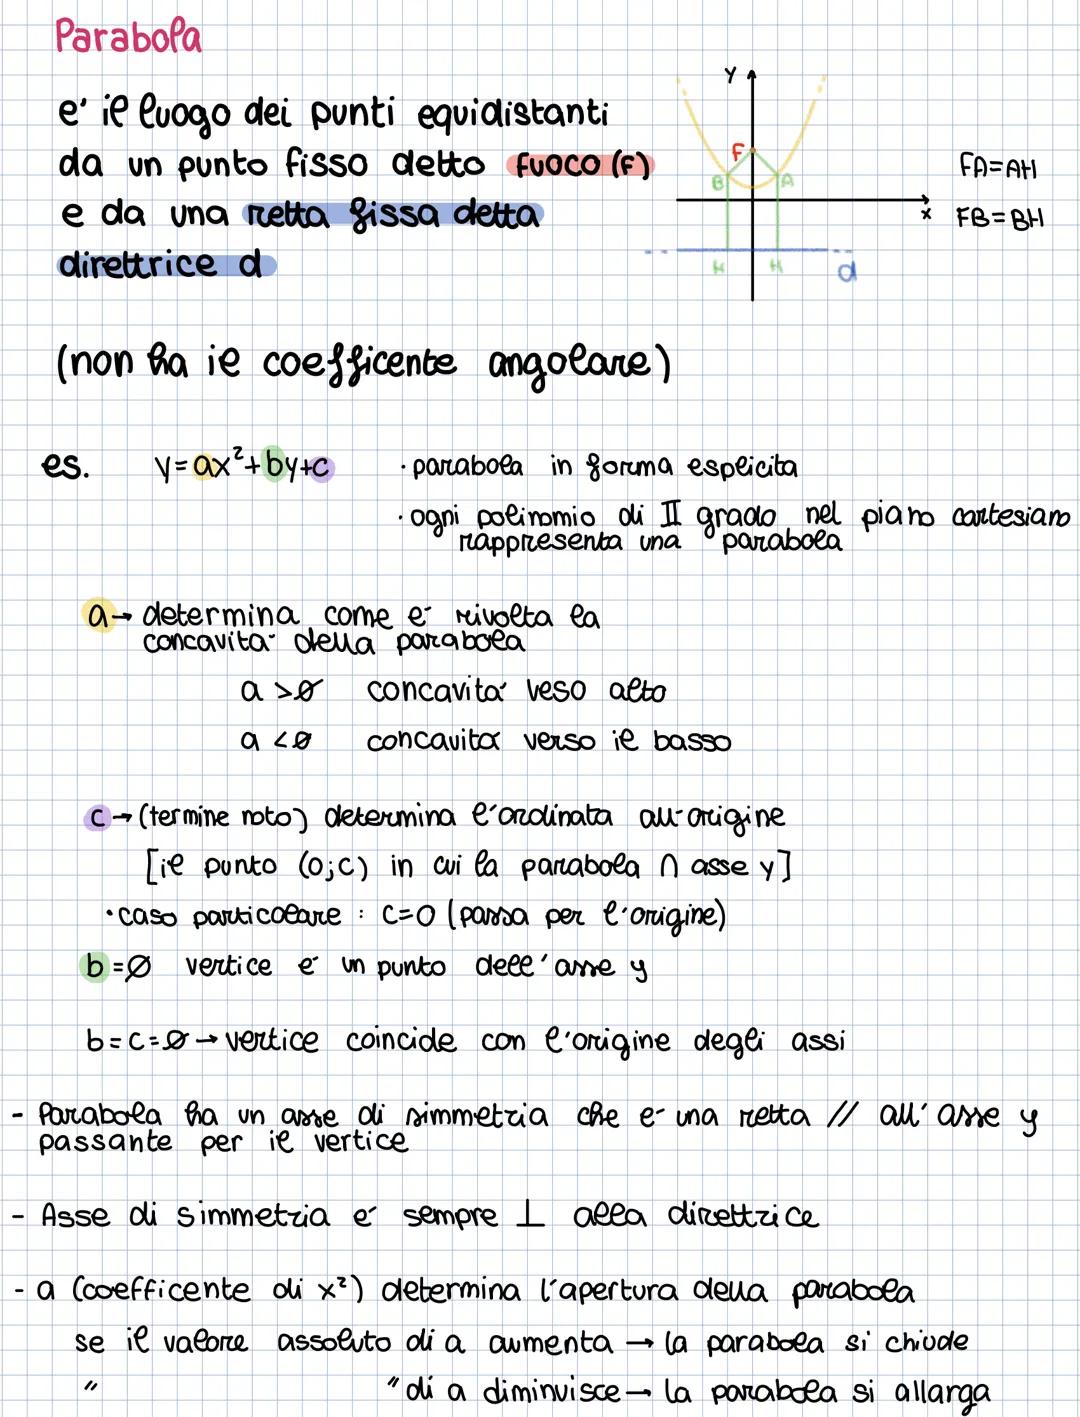 Parabola
e' il luogo dei punti equidistanti
da un punto fisso detto fuoco (F)
e da una retta fissa detta
direttrice d
y
F
B
A
x
H
H
d
FA=AH
FB=BH
(non ha il coefficente angolare)
es. y=ax²+by+c · parabola in forma esplicita
· ogni polinomio di II grado nel piano cartesiano
rappresenta una parabola
a→ determina come e' rivolta la
concavita' della parabola
a >0 concavita' veso alto
a <0 concavita verso il basso
c→(termine noto) determina l'ordinata all'origine
[il punto (0;c) in cui la parabola ∩ asse y]
· caso particolare : c=0 (passa per l'origine)
b=0 vertice e' un punto dell'asse y
b=c=0→vertice coincide con l'origine degli assi
- Parabola ha un asse di simmetria che e' una retta // all'asse y
passante per il vertice
- Asse di simmetria e' sempre ⊥ alla direttrice
- a (coefficente di x²) determina l'apertura della parabola
se il valore assoluto di a aumenta → la parabola si chiude
" " di a diminuisce→ la parabola si allarga